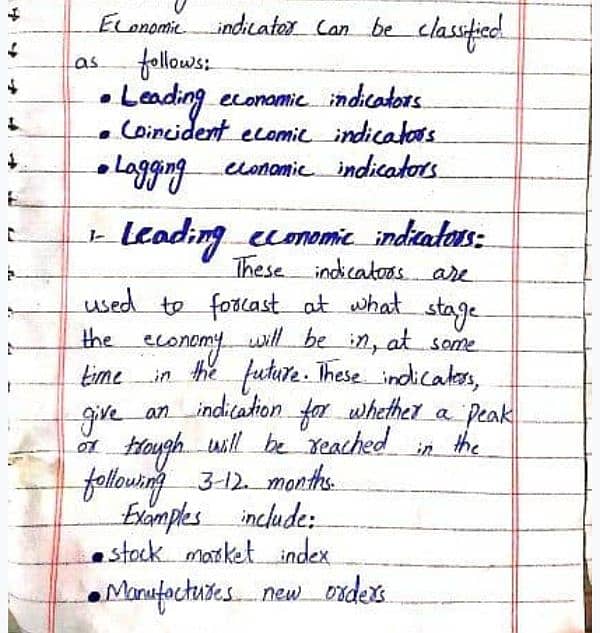 Economic indicator can be classified
as follows:
• Leading economic indicators
• Coincident ecomic indicators
• Lagging economic indicators
1- Leading economic indicators:
These indicators are
used to forcast at what stage
the economy will be in, at some
time in the future. These indicators,
give an indication for whether a peak
or trough will be reached in the
following 3-12 months.
Examples include:
• stock market index
• Manufactures new orders